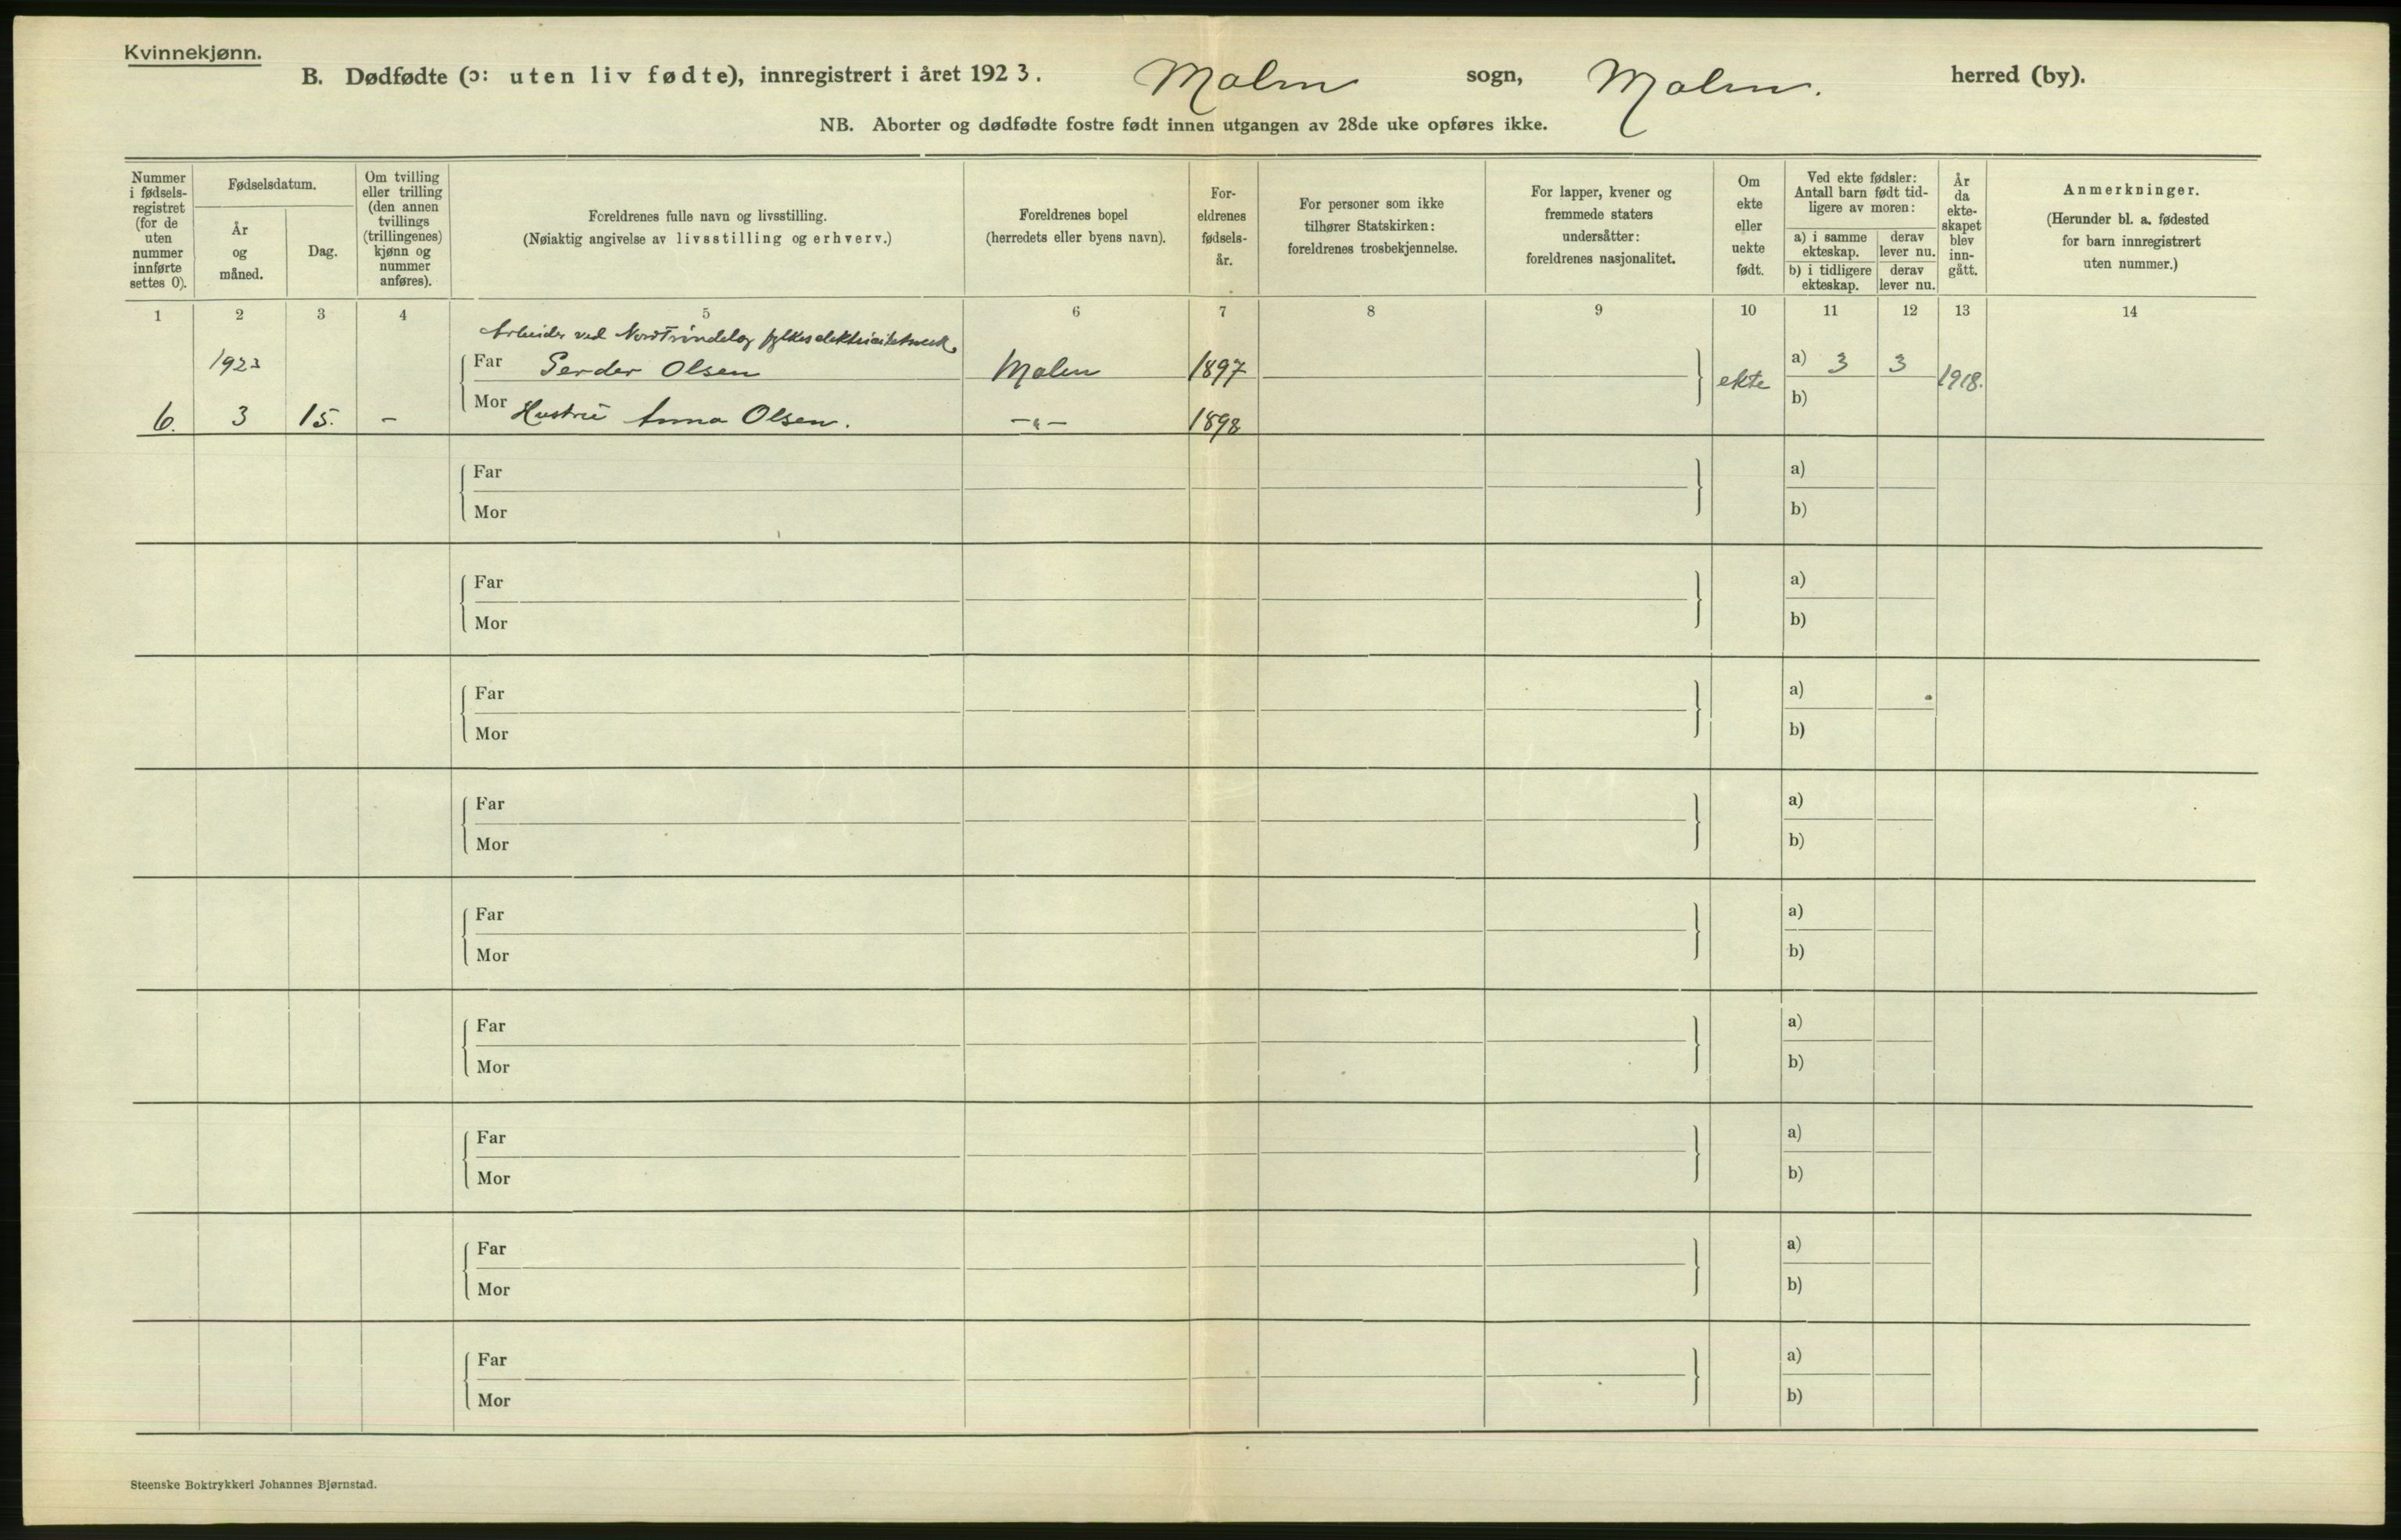 Kvinnekjønn.
B. Dødfødte (ɔ: uten liv fødte), innregistrert i året 1923. Malm sogn, Malm. herred (by).
NB. Aborter og dødfødte fostre født innen utgangen av 28de uke opføres ikke.
Nummer
i fødsels-
registret
(for de
uten
nummer
innførte
settes 0).
Fødselsdatum.
År
og
måned.
Dag.
Om tvilling
eller trilling
(den annen
tvillings
(trillingenes)
kjønn og
nummer
anføres).
Foreldrenes fulle navn og livsstilling.
(Nøiaktig angivelse av livsstilling og erhverv.)
Foreldrenes bopel
(herredets eller byens navn).
For-
eldrenes
fødsels-
år.
For personer som ikke
tilhører Statskirken:
foreldrenes trosbekjennelse.
For lapper, kvener og
fremmede staters
undersåtter:
foreldrenes nasjonalitet.
Om
ekte
eller
uekte
født.
Ved ekte fødsler:
Antall barn født tid-
ligere av moren:
a) i samme
ekteskap.
derav
lever nu.
b) i tidligere
ekteskap.
derav
lever nu.
År
da
ekte-
skapet
blev
inn-
gått.
Anmerkninger.
(Herunder bl. a. fødested
for barn innregistrert
uten nummer.)
1 2 3 4 5 6 7 8 9 10 11 12 13 14
Arbeider ved NordTrøndelag fylkes
1923 Far Olsen Malm 1897 ekte a) 3 3 1918.
6. 3 15. - Mor Hustru Anna Olsen. -"- 1898 b)
Far a)
Mor b)
Far a)
Mor b)
Far a)
Mor b)
Far a)
Mor b)
Far a)
Mor b)
Far a)
Mor b)
Far a)
Mor b)
Far a)
Mor b)
Far a)
Mor b)
Steenske Boktrykkeri Johannes Bjørnstad.